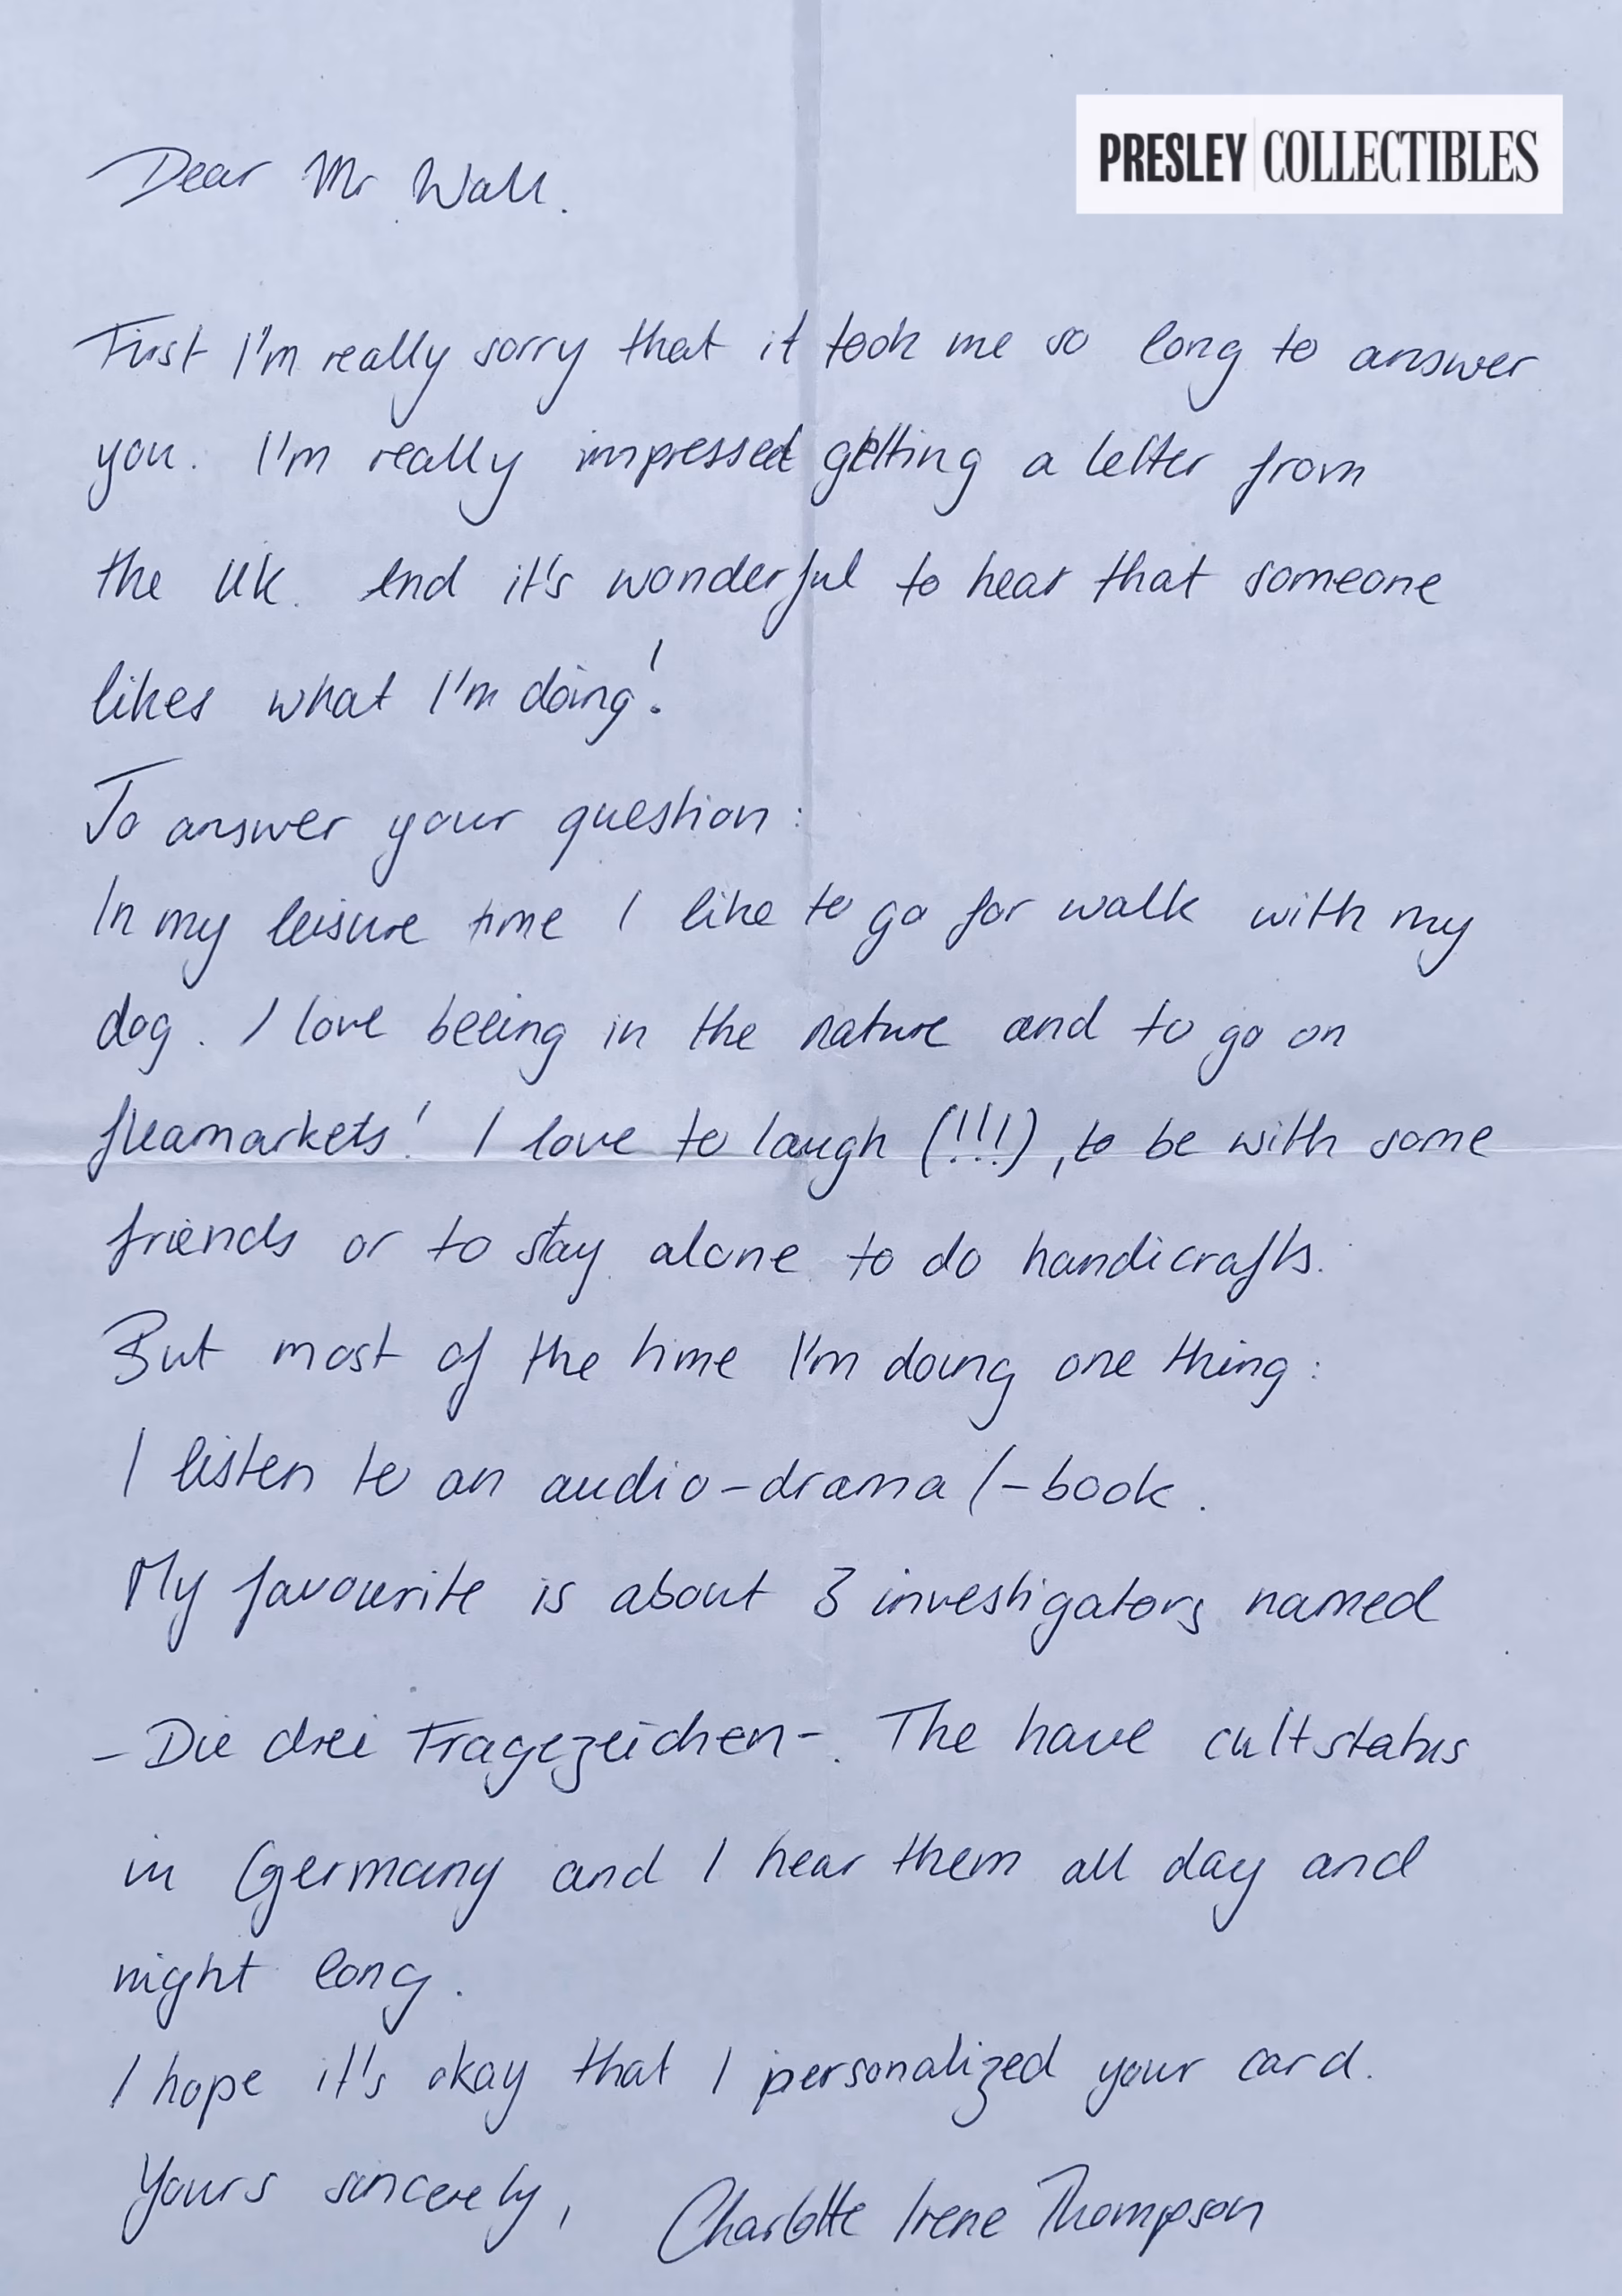 PRESLEY COLLECTIBLES
Dear Mr Wall.
First I'm really sorry that it took me so long to answer
you. I'm really impressed getting a letter from
the UK. And it's wonderful to hear that someone
likes what I'm doing!
To answer your question:
In my leisure time I like to go for walk with my
dog. I love beeing in the nature and to go on
fleamarkets! I love to laugh (!!!), to be with some
friends or to stay alone to do handicrafts.
But most of the time I'm doing one thing:
I listen to an audio-drama/-book.
My favourite is about 3 investigators named
- Die drei Fragezeichen -. The have cultstatus
in Germany and I hear them all day and
night long.
I hope it's okay that I personalized your card.
Yours sincerely, Charlotte Irene Thompson